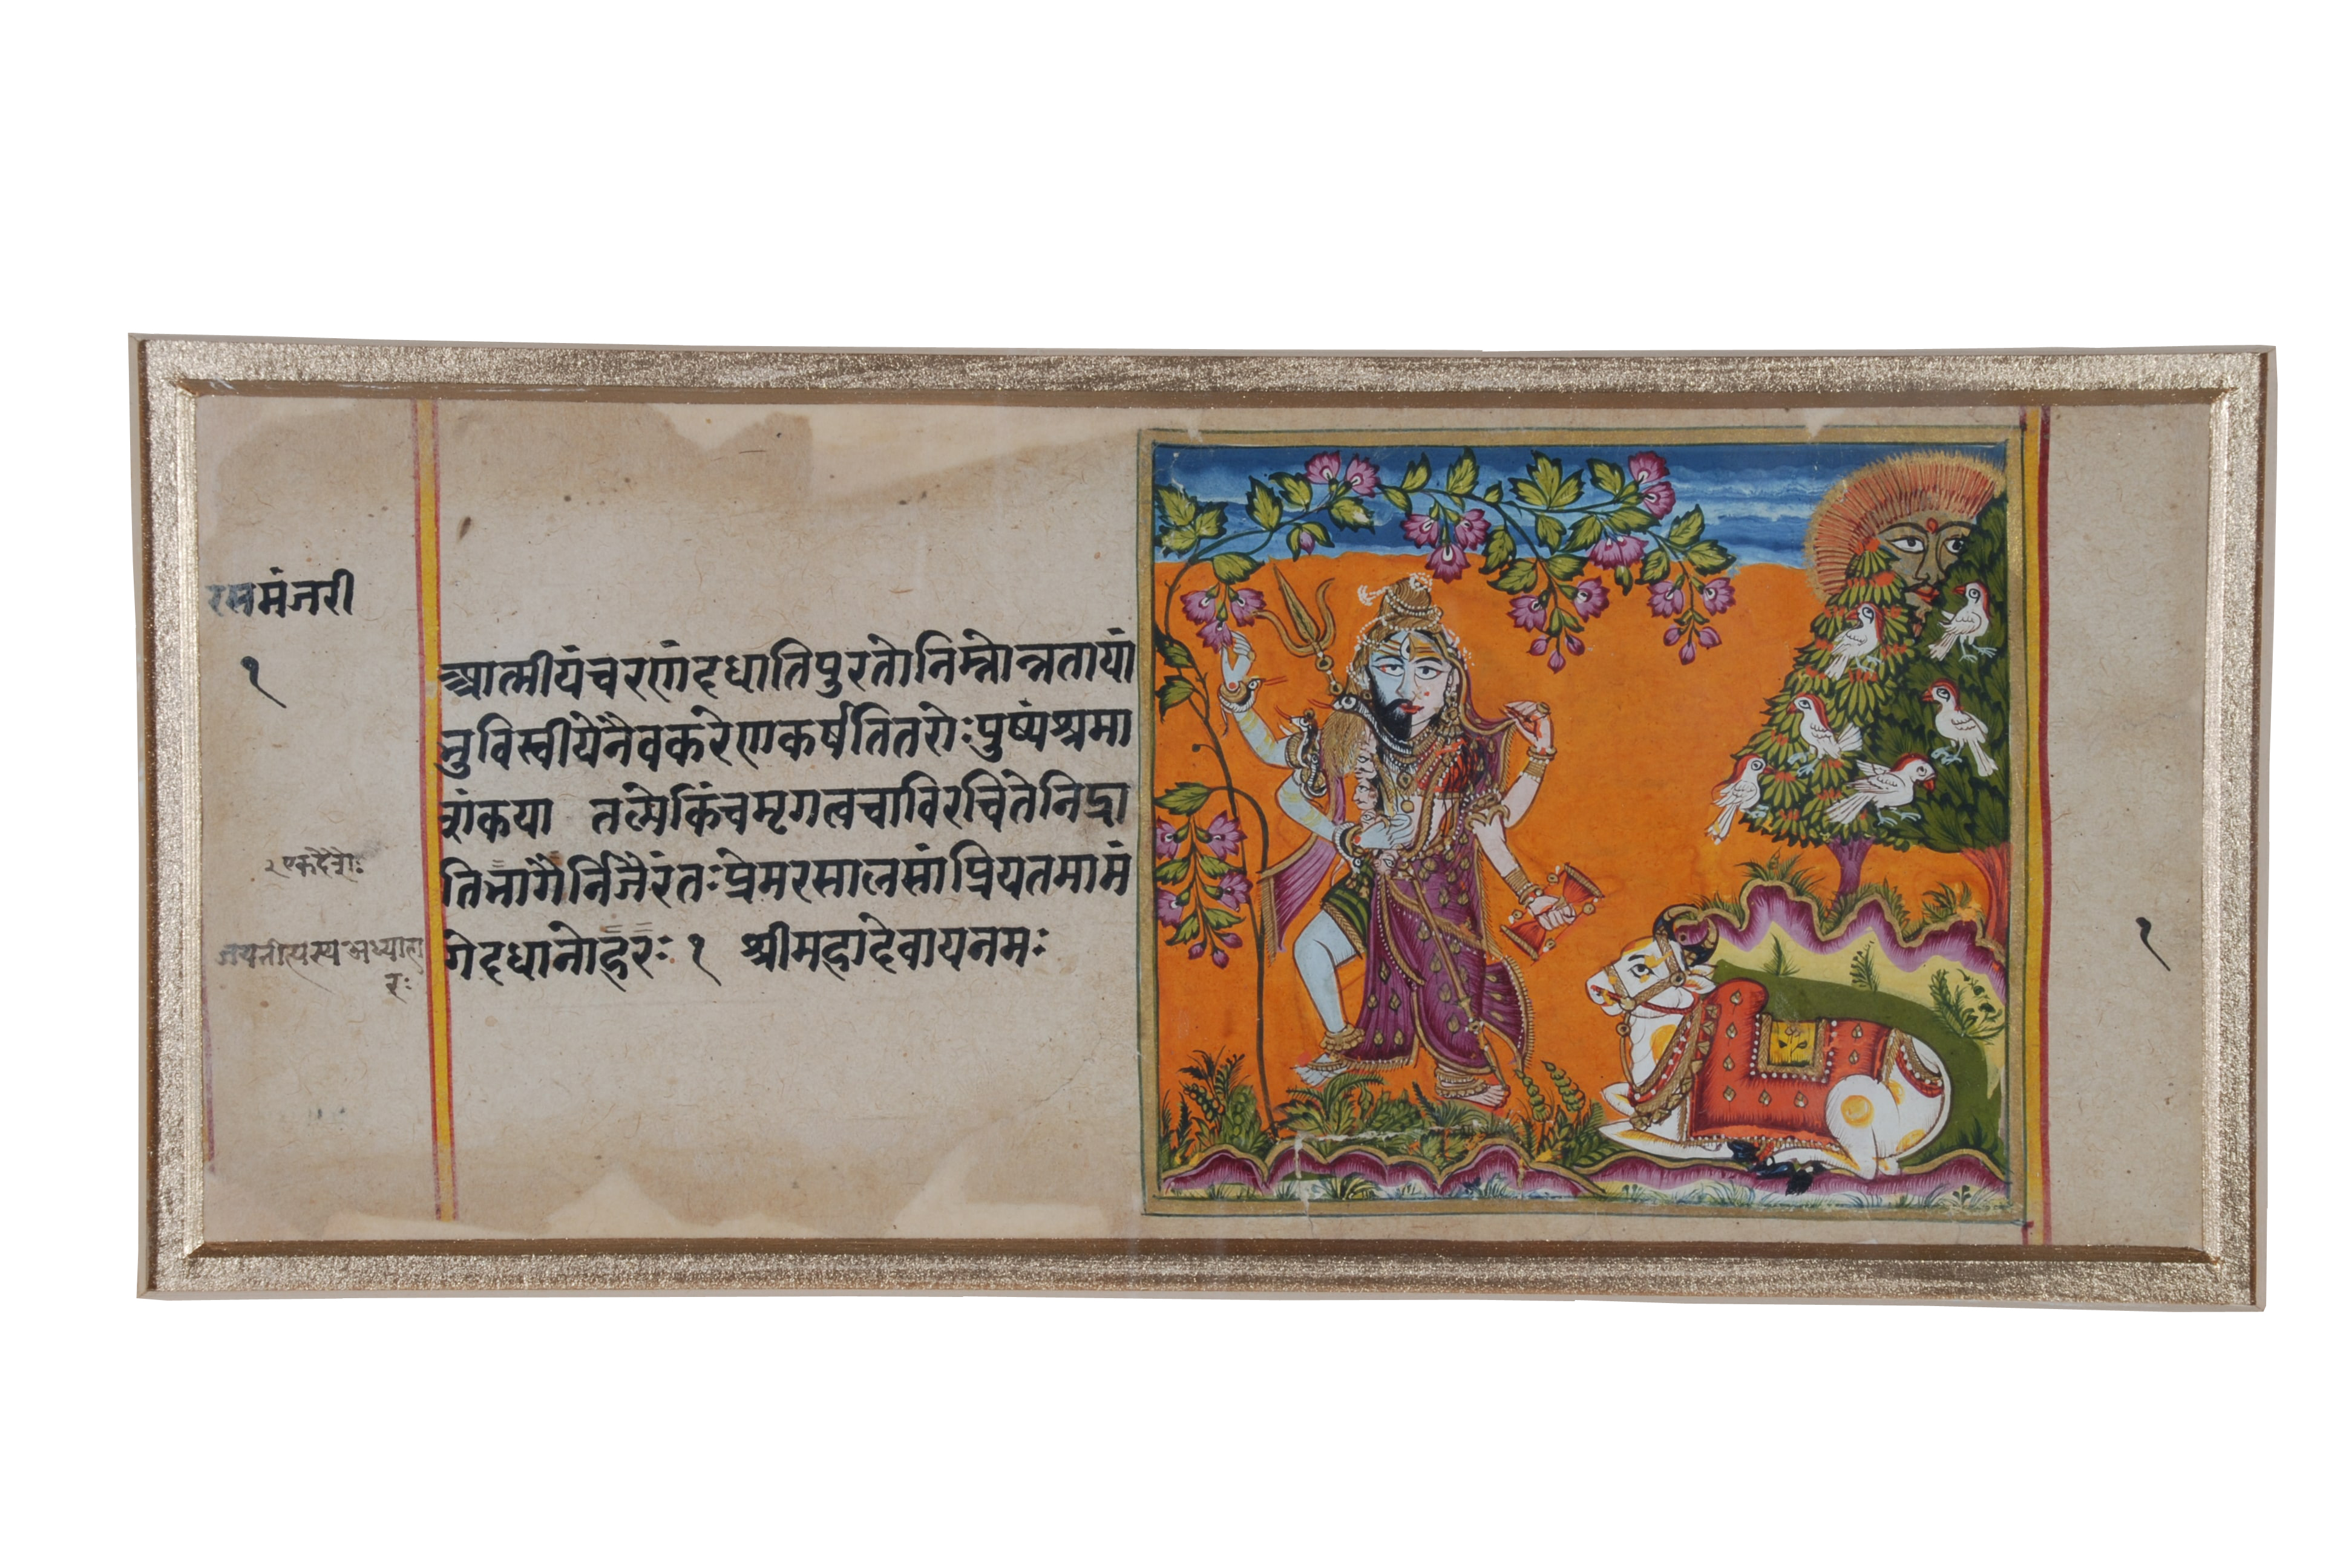 रसमंजरी
१
आत्मीयंचरणंदधातिपुरतोनिम्नोन्नतायां
नुविस्वीयेनैवकरेणकर्षतितरोःपुष्पंश्रमा
शंकया तल्पेकिंचमृगत्वचाविरचितेनिद्रा
तिभागैर्निजैरंतःप्रेमरसालसांप्रियतमामं
गेदधानोहरः १ श्रीमहादेवायनमः
जयतीत्यस्य अध्याहा
रः
१